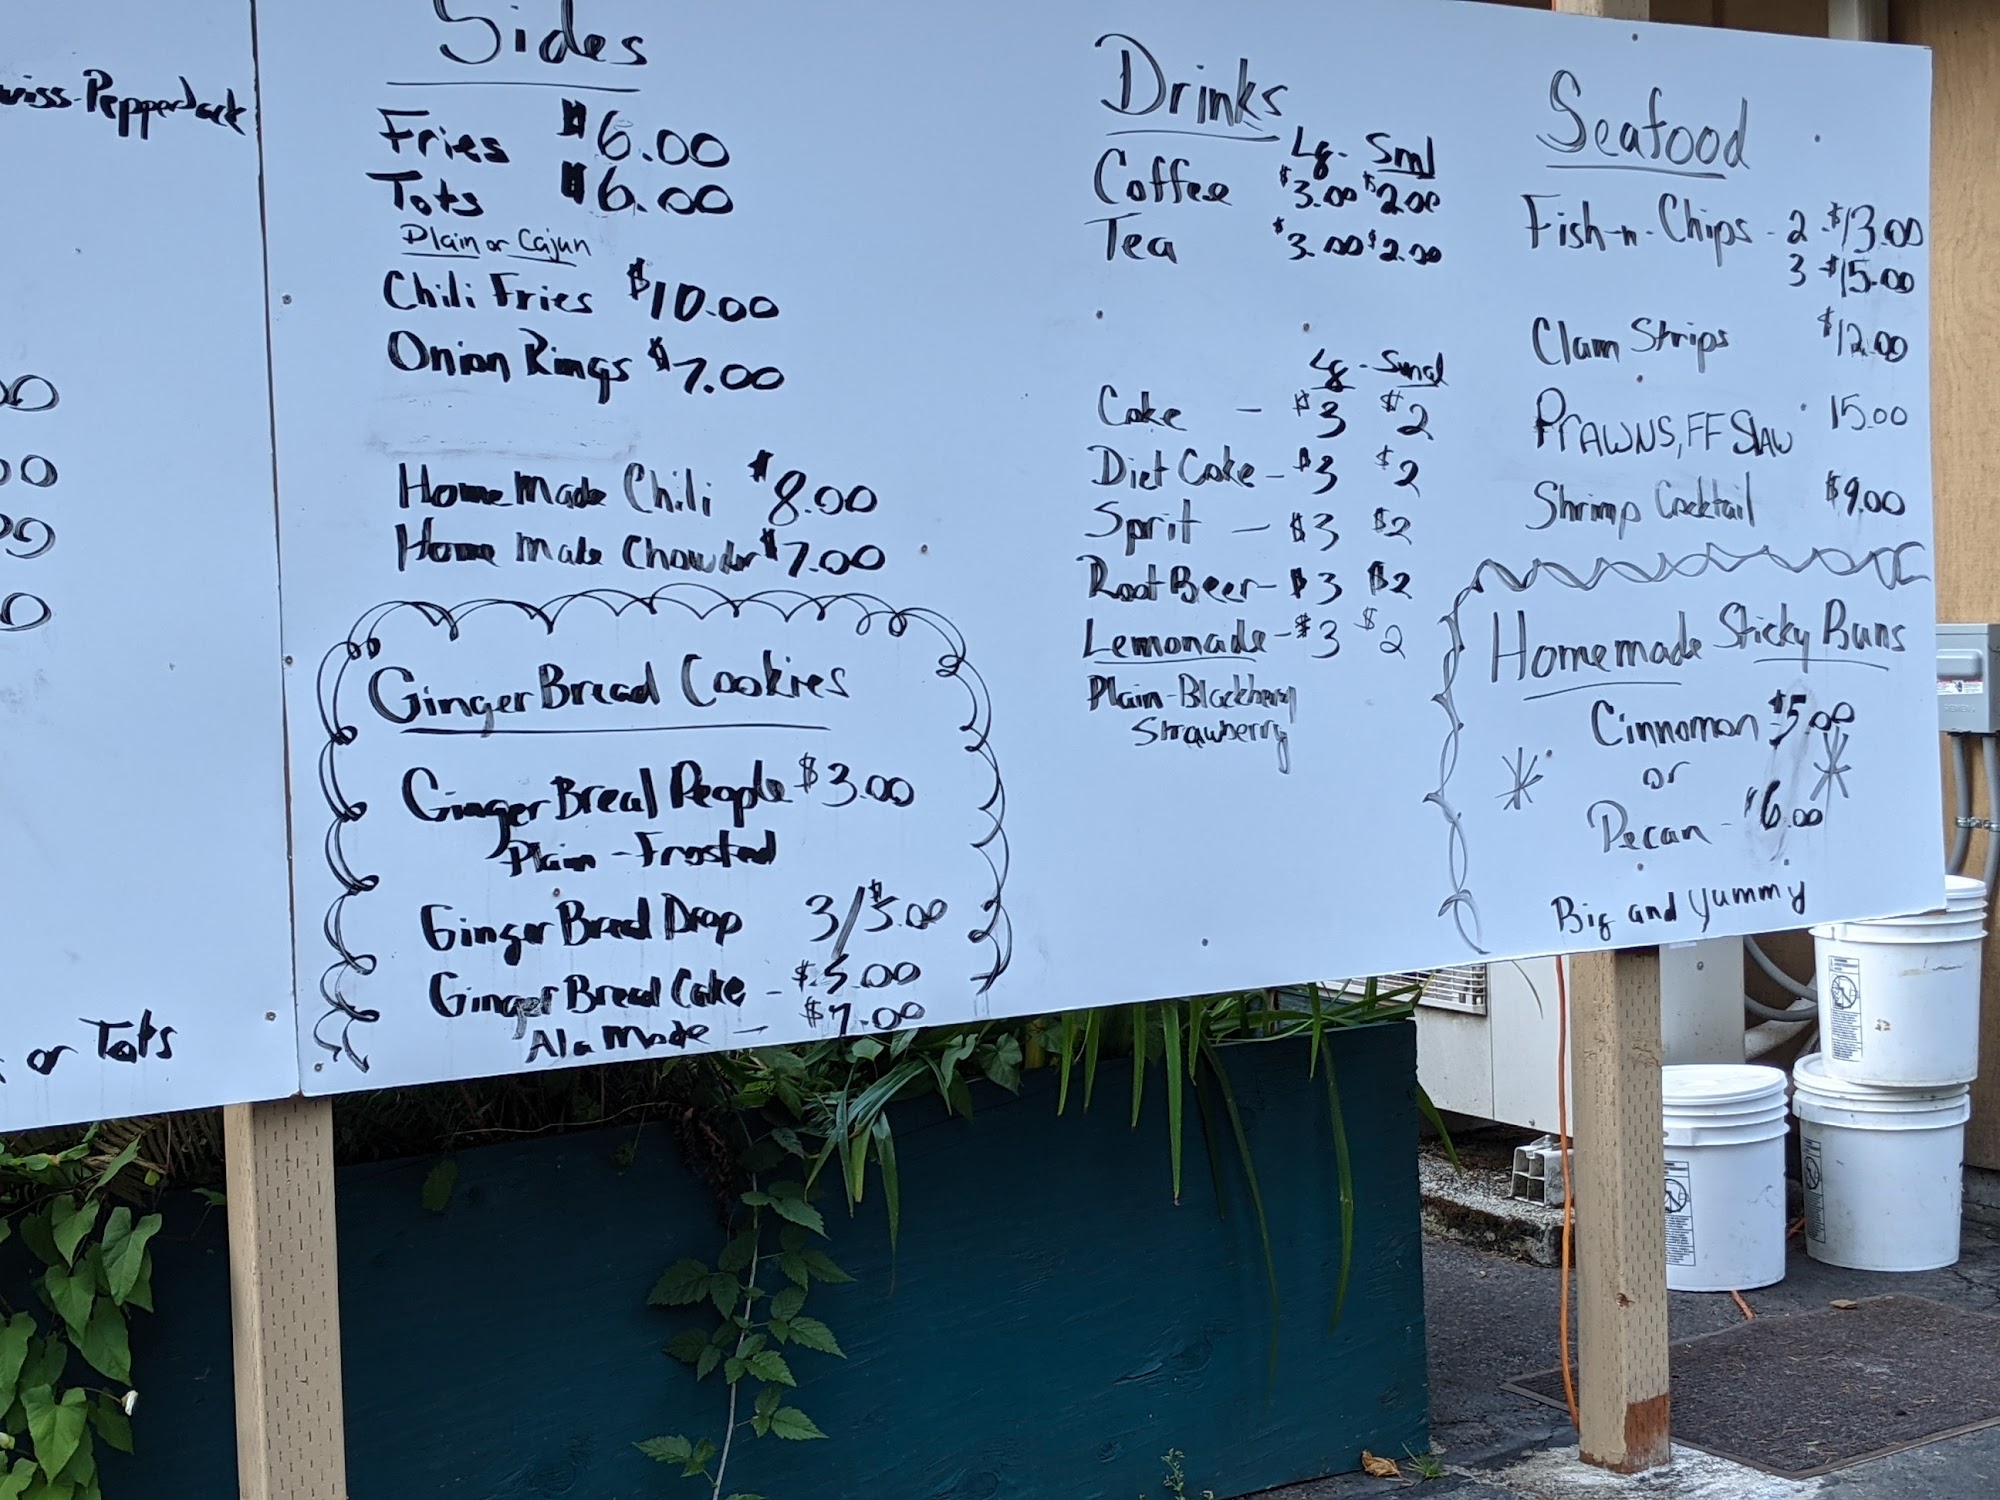 Pepperjack
or Tots
Sides
Fries $6.00
Tots $6.00
Plain or Cajun
Chili Fries $10.00
Onion Rings $7.00
Home Made Chili $8.00
Home Made Chowder $7.00
Ginger Bread Cookies
Ginger Bread People $3.00
Plain - Frosted
Ginger Bread Drop 3/$5.00
Ginger Bread Cake - $5.00
Ala Mode - $7.00
Drinks
Lg - Sml
Coffee $3.00 $2.00
Tea $3.00 $2.00
Lg - Smal
Coke - $3 $2
Diet Coke - $3 $2
Sprit - $3 $2
Root Beer - $3 $2
Lemonade - $3 $2
Plain - Blackberry
Strawberry
Seafood
Fish-n-Chips - 2 $13.00
3 $15.00
Clam Strips $12.00
PRAWNS, FF SLAW 15.00
Shrimp Cocktail $9.00
Homemade Sticky Buns
Cinnamon $5.00
or
Pecan - $6.00
Big and Yummy